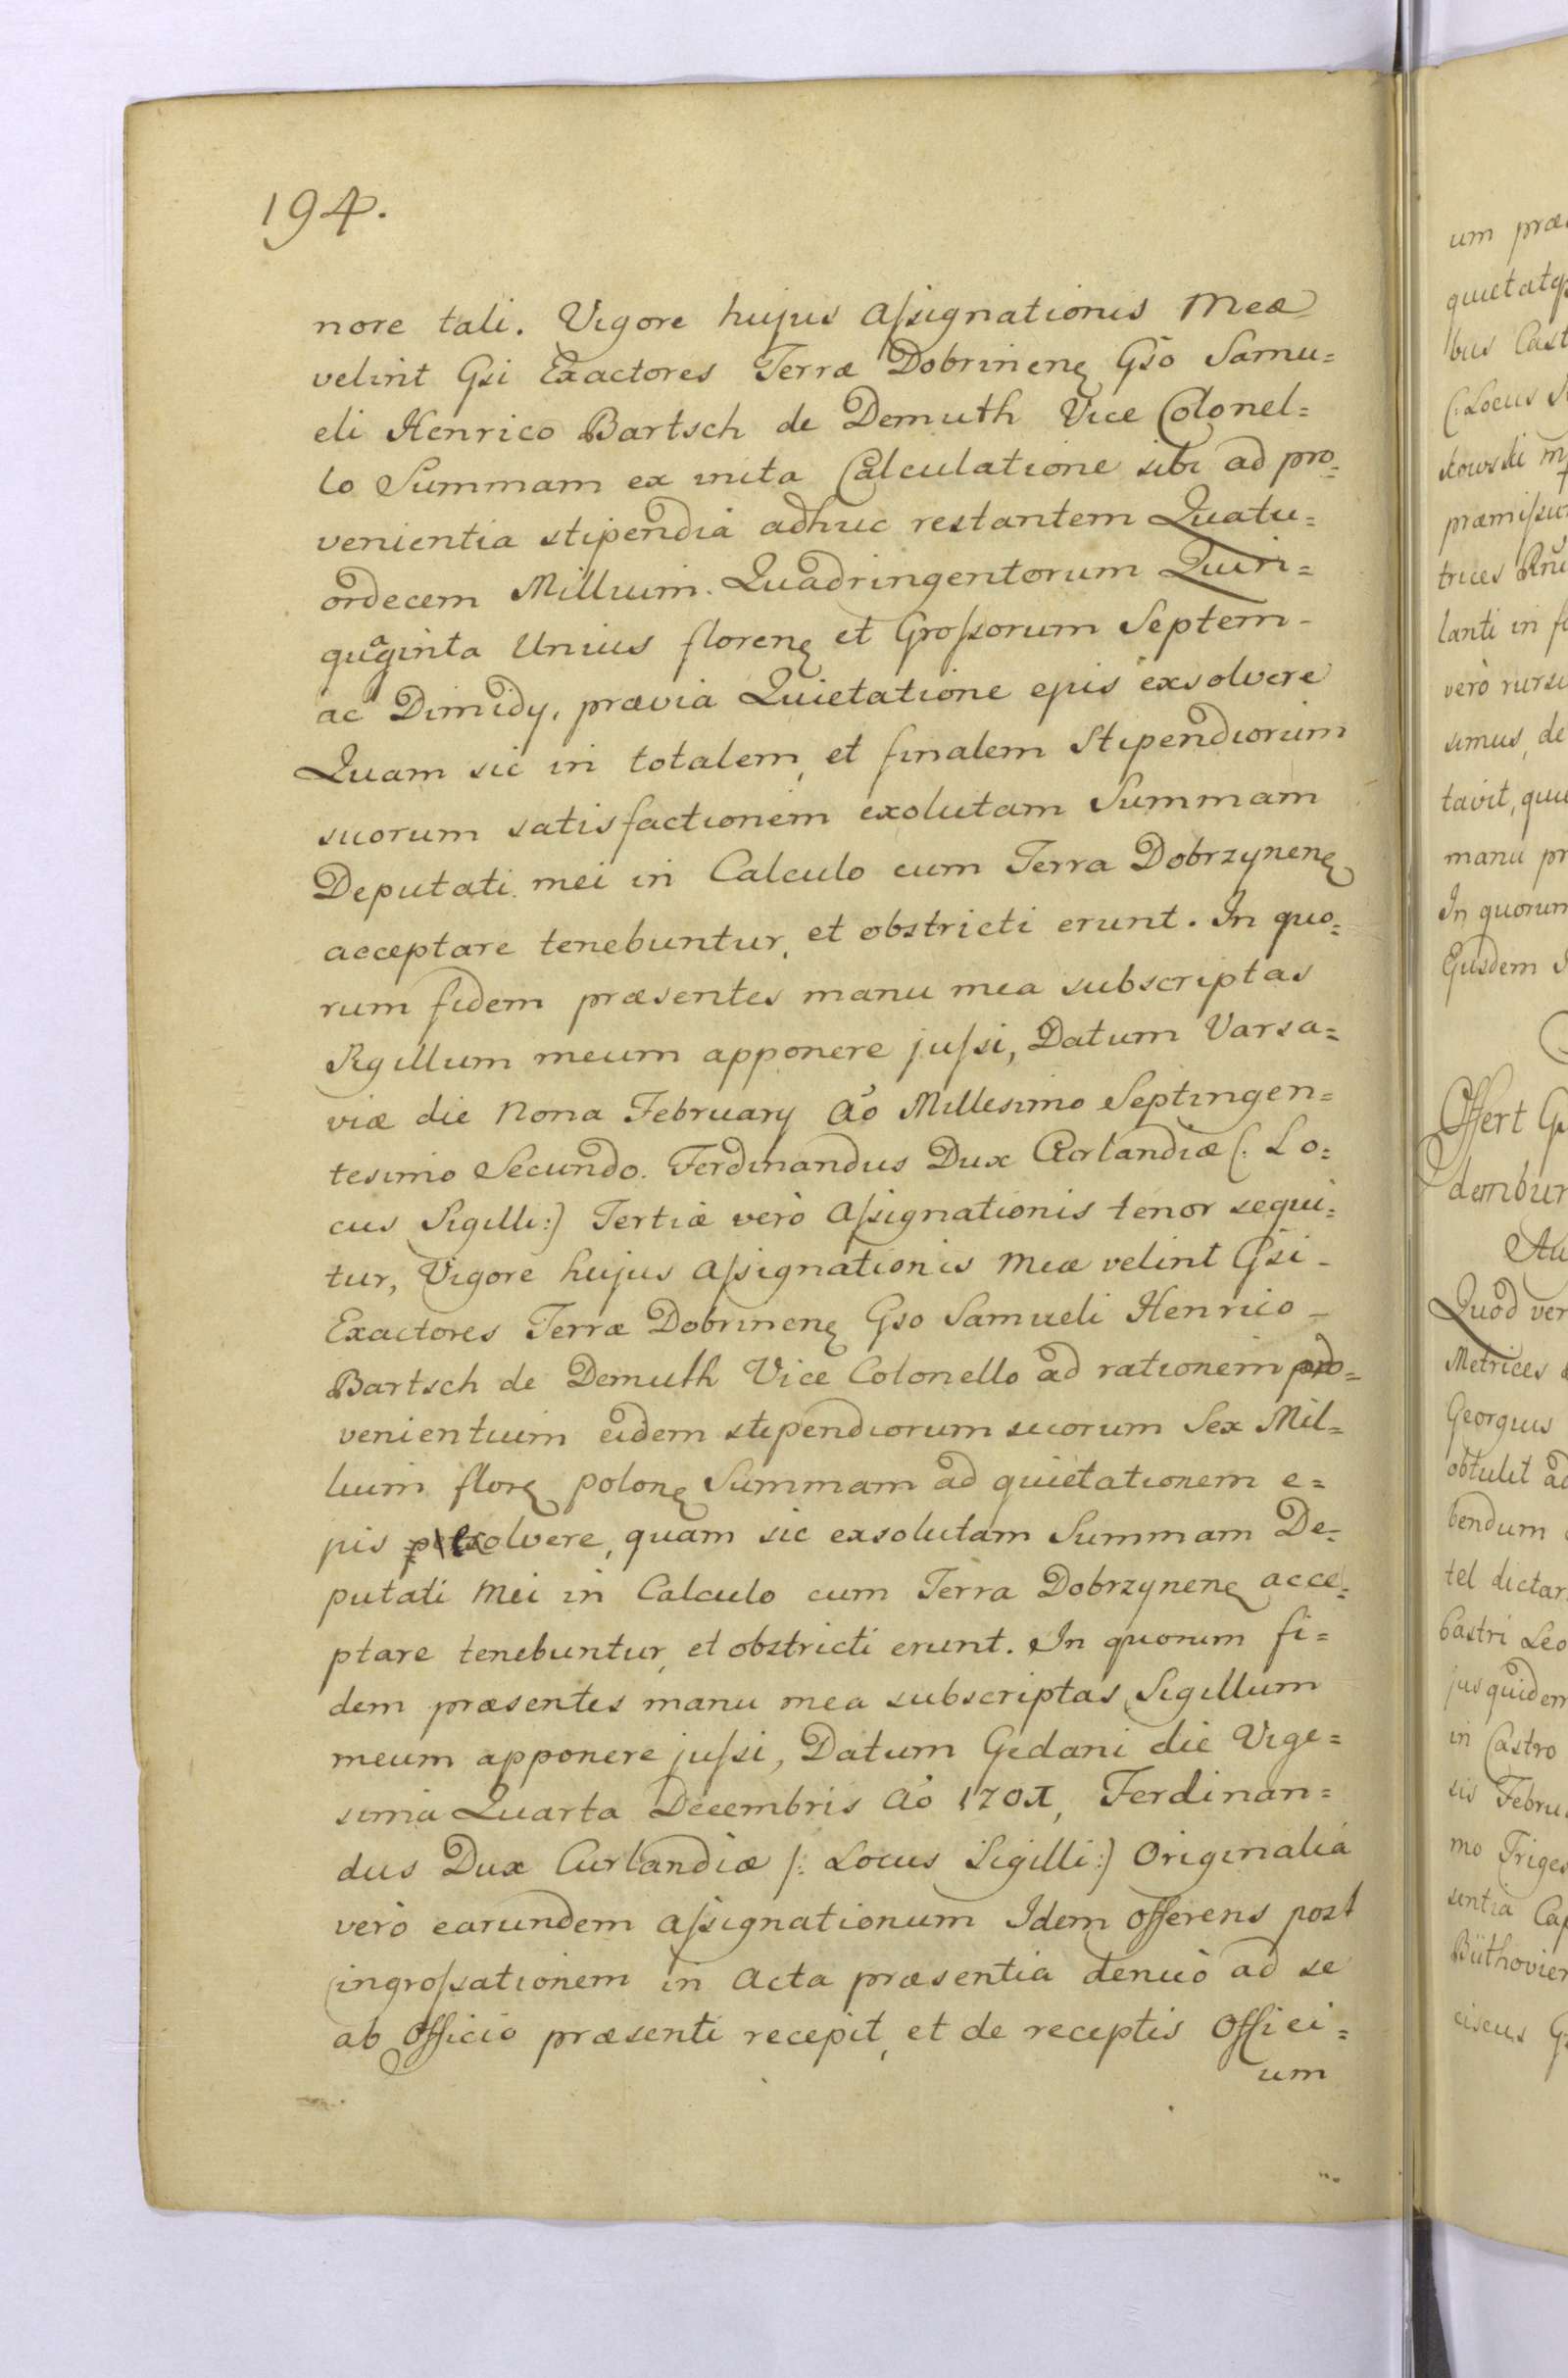 194.
nore tali. Vigore hujus Aſsignationis Meæ
velint Gsi Exactores Terræ Dobrinenę Gso Samu=
eli Henrico Bartsch de Demuth Vice Colonel=
lo Summam ex inita Calculatione sibi ad pro=
venientia stipendia adhuc restantem Quatu=
ordecem Millium. Quadringentorum Quin=
quaginta Unius florenę et Groſsorum Septem-
ac Dimidy, prævia Quietatione ejus exsolvere
Quam sic in totalem, et finalem Stipendiorum
suorum satisfactionem exolutam Summam
Deputati mei in Calculo cum Terra Dobrzynenę
acceptare tenebuntur, et obstricti erunt. In quo=
rum fidem præsentes manu mea subscriptas
Sigillum meum apponere juſsi, Datum Varsa=
viæ die Nona February Ao Millesimo Septingen=
tesimo Secundo. Ferdinandus Dux Curlandiæ (: Lo=
cus Sigilli:) Tertiæ verò Aſsignationis tenor sequi=
tur, Vigore hujus Aſsignationis Meæ velint Gsi-
Exactores Terræ Dobrinenę Gso Samueli Henrico-
Bartsch de Demuth Vice Colonello ad rationem pro=
venientium eidem stipendiorum suorum Sex Mil=
lium florę polonę Summam ad quietationem e=
jus exsolvere, quam sic exsolutam Summam De=
putati Mei in Calculo cum Terra Dobrzynenę acce=
ptare tenebuntur, et obstricti erunt. In quorum fi=
dem præsentes manu mea subscriptas, Sigillum
meum apponere juſsi, Datum Gedani die Vige=
sima Quarta Decembris Ao 1701, Ferdinan=
dus Dux Curlandiæ /: Locus Sigilli:) Originalia
verò earundem aſsignationum Idem Offerens post
ingroſsationem in Acta præsentia denuò ad se
ab Officio præsenti recepit, et de receptis Offici=
um
um
quietatq
bus Cast
(: Locus
lanti in
verò
simus, de
tavit,
manu
In quorum
Ejusdem
Offert
Quod
Metrices
Georgius
obtulit ad
bendum
tel
Castri
jus quidem
in Castro
sis
mo